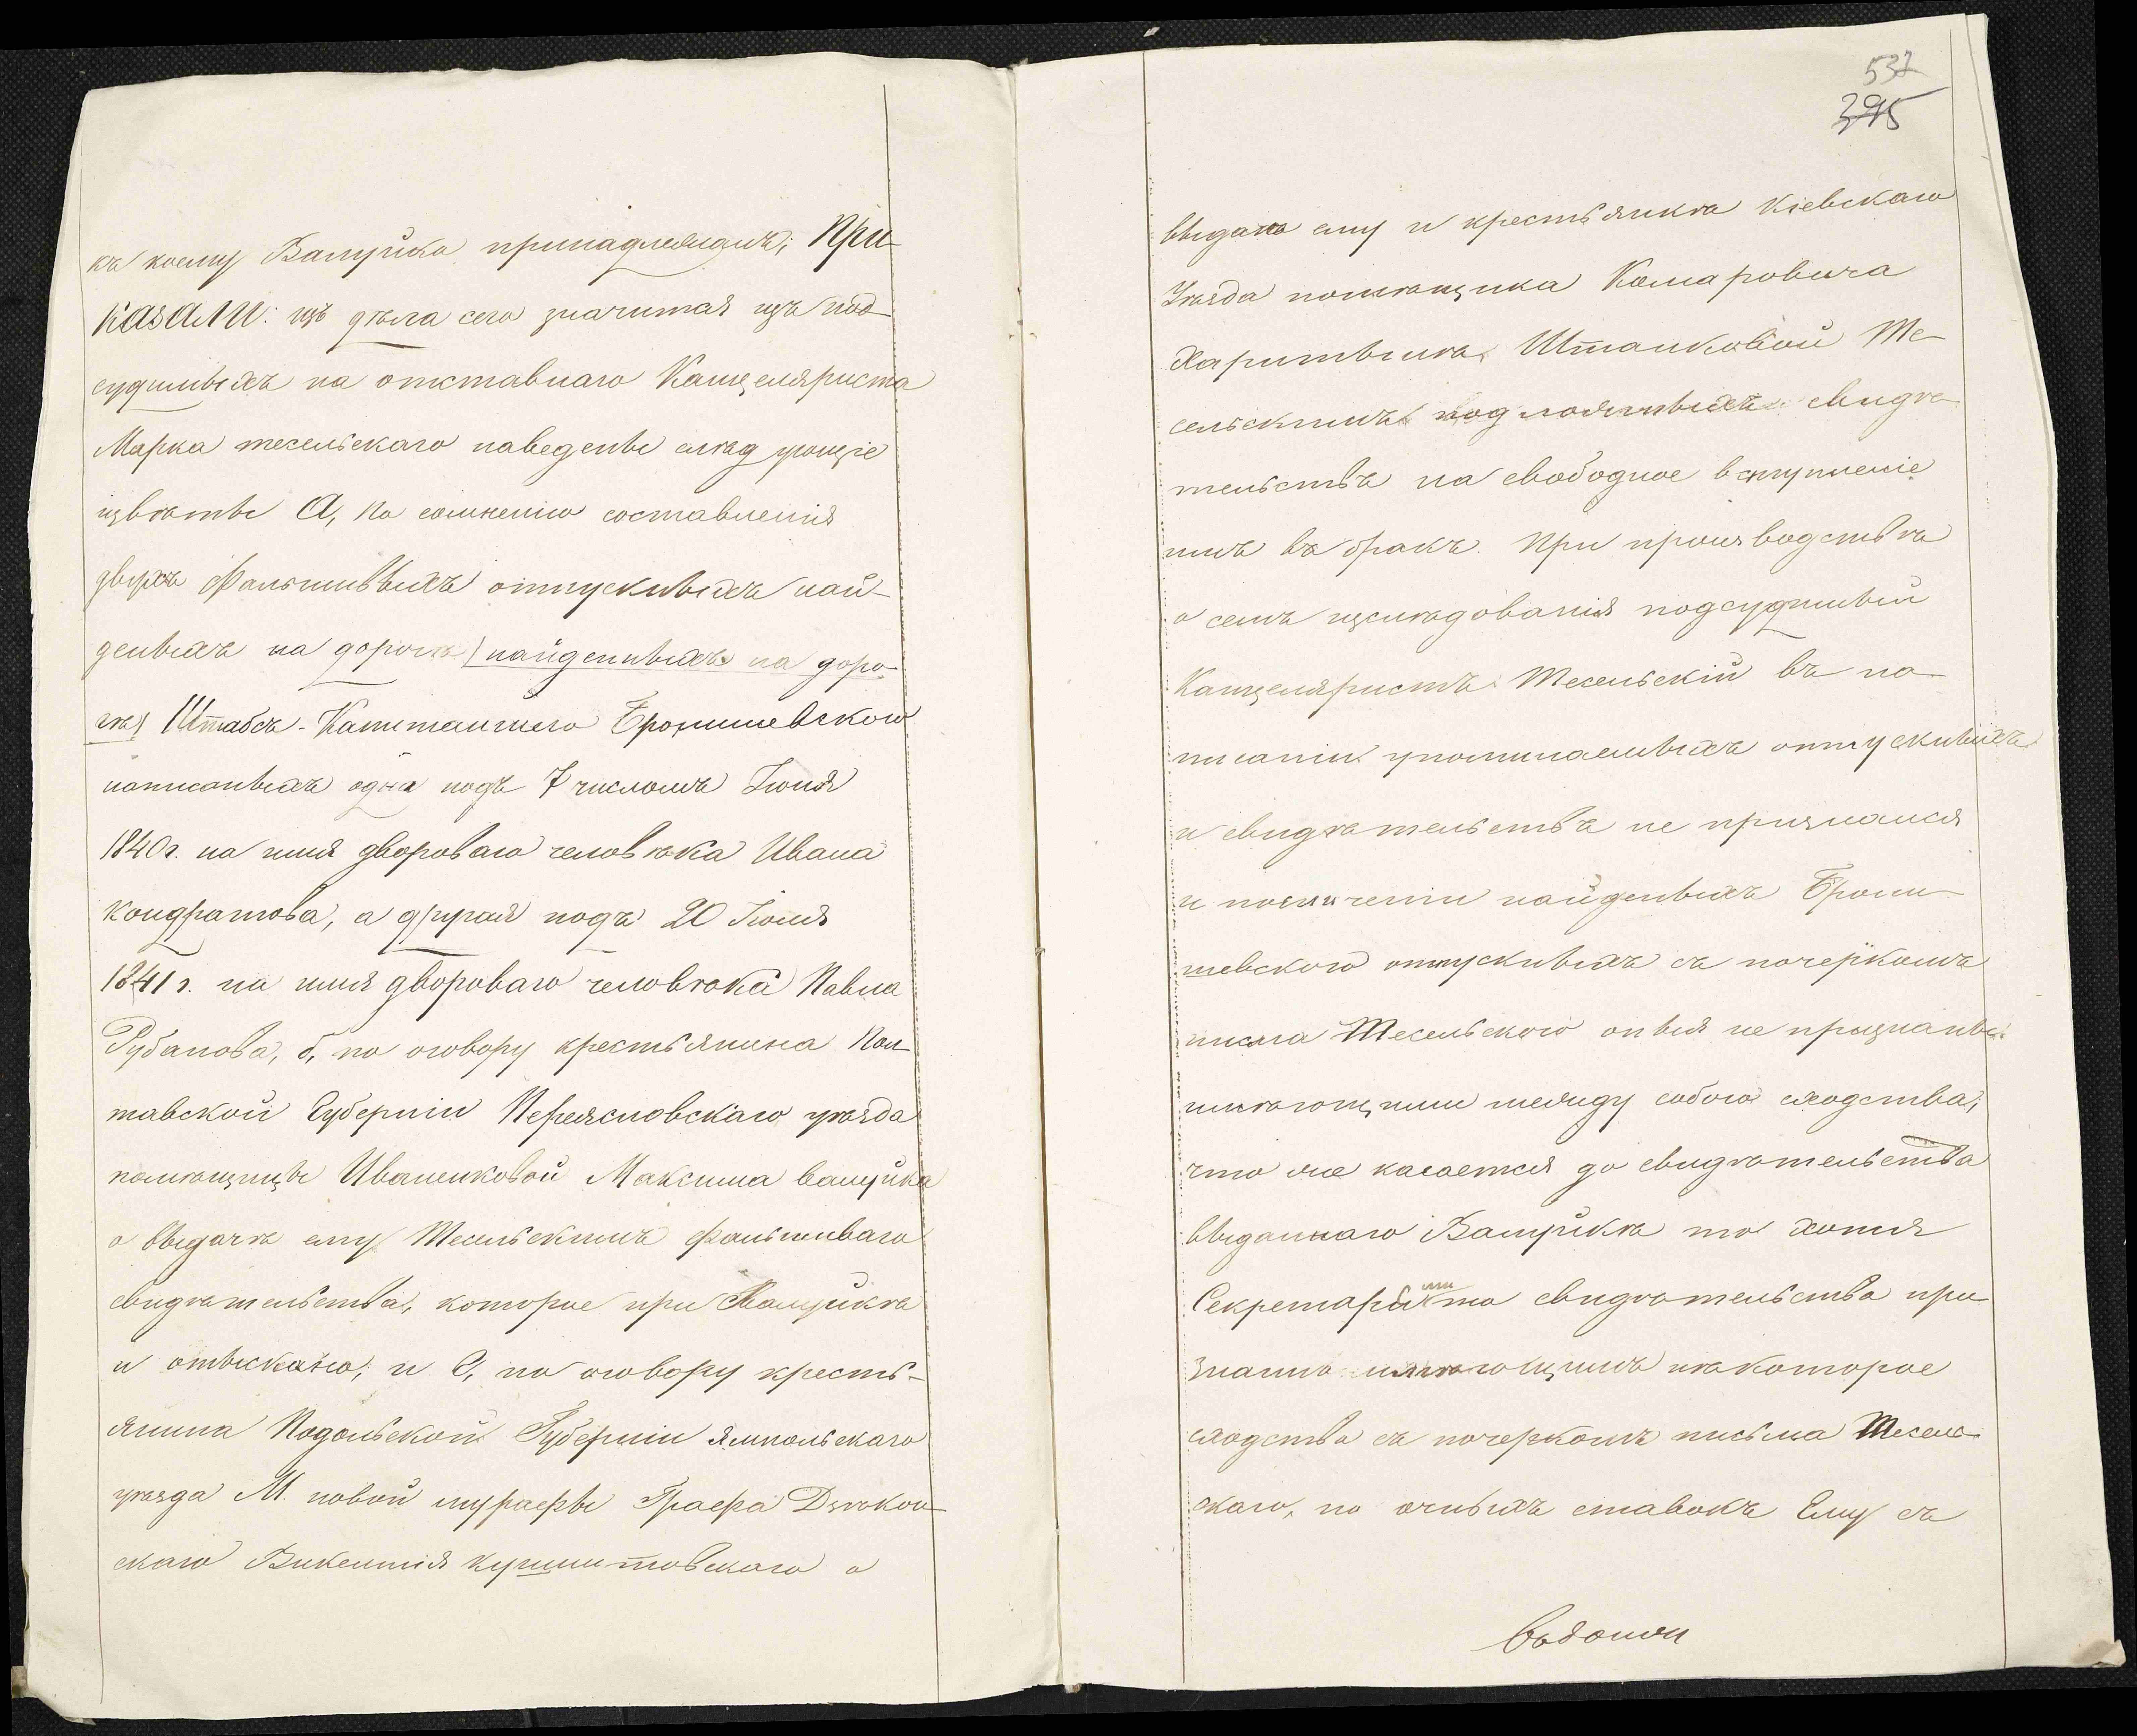 къ коему Вануйко принадлежалъ; При-
казали: изъ дѣла сего значится изъ под-
судимыхъ на отставнаго Канцеляриста
Марка тесельскаго наведены слѣдующіе
извѣты А, по сомненію составленія
двухъ Фальшивыхъ отпускныхъ най-
деныхъ на дорогѣ) найденныхъ на доро-
гѣ) Штабсъ-Капитаншею Бронишевскою
написанныхъ одна подъ 7 числомъ Іюня
1840 г. на имя двороваго человѣка Ивана
Кондратова, а другая подъ 20 Іюня
1841 г. на имя двороваго человѣка Павла
Рубанова, б, по оговору крестьянина Пол-
тавской Губерніи Переясловскаго уѣзда
помѣщицы Иваненковой Максима Вануйка
о выдачѣ ему Тесельскимъ фальшиваго
свидѣтельства, которое при Вануйкѣ
и отыскано; и С, по оговору кресть-
янина Подольской Губерніи Ямпольскаго
уѣзда М. новой мурафы Графа Дзѣкон-
скаго Викентія Куршитовскаго о
537
395
выдачѣ ему и крестьянкѣ Кіевскаго
Уѣзда помѣщика Комаровича
Харитынѣ Штанковой Те-
сельскимъ подложныхъ свидѣ-
тельствъ на свободное вступленіе
имъ въ бракъ. При производствѣ
о семъ изслѣдованія подсудимый
Канцеляристъ Тесельскій въ на-
писаніи упоминаемыхъ отпускныхъ
и свидѣтельствъ не признался
и по сличеніи найденыхъ Брони-
шевскою отпускныхъ съ почеркомъ
писма Тесельскаго оныя не признаны
имѣющими между собою сходства;
что же касается до свидѣтельства
выданнаго Вануйкѣ то хотя
Секретарями то свидѣтельства при-
знанно имѣющимъ нѣкоторое
сходство съ почеркомъ письма Тесель-
скаго, но очныхъ ставокъ Ему съ